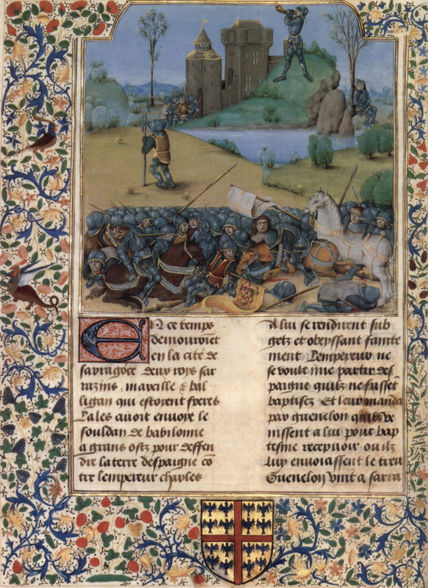 En ce temps
demouroiet
en la cite de
sarragoce deux roys sar
razins marcille & bal
ligan qui estoient freres
Lales auoit enuoye le
souldan de babilonne
a grans ostz pour deffen
dre la terre despaigne cō
tre lempereur charles
A lui se rendirent sub
getz et obeyssant fainte
ment Lempereur ne
se voult mie partir des
paigne quilz ne fussent
baptisez Et leur manda
par guenelon quilz ve
nissent a lui pour bap
tesme receuoir ou ilz
luy enuoiassent le treu
Guenelon vint a sarra